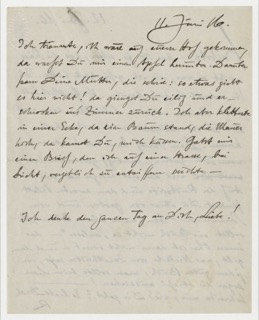 11. Juni 16.
Ich träumte, ich wäre auf einen Hof gekommen,
da warfst Du mir einen Apfel herunter. Darüber
kam Deine Mutter, die schrie: so etwas giebt
es hier nicht! da giengst Du eilig und er-
schrocken ins Zimmer zurück. Ich aber kletterte
in einer Ecke, da ein Baum stand, die Mauer
hoch, da kamst Du, mich küssen. Gabst mir
einen Brief, den ich auf einer Strasse, bei
Licht, vergeblich zu entziffern suchte —
Ich denke den ganzen Tag an Dich, Liebe!